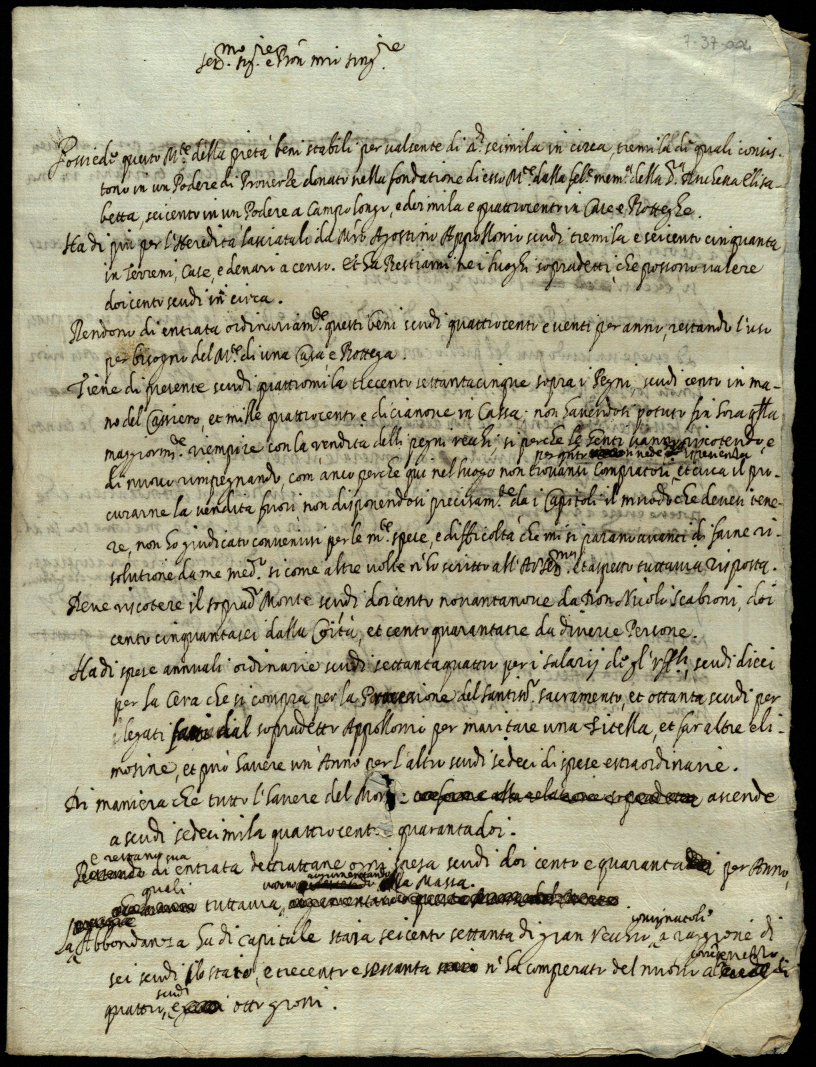 7-37-002
Ser.mo sig.re e Pron mio sing.re
Possiede questo M.te della pietà beni stabili per valsente di seimila in circa, tremila di quali consis-
tono in un Podere di Proverza donato nella fondatione di esso M.te dalla fel. mem. della Elisa-
betta, seicento in un Podere a Campo longo, e doi mila e quattrocento in Case e Botteghe.
Ha di più per l'Heredità lasciatali da Agostino Appollonio scudi tremila e seicento cinquanta
in Terreni, Case, e denari a censo. Et ha Bestiami ne i luoghi sopradetti, che possono valere
doicento scudi in circa.
Rendono di entrata ordinariam.te questi beni scudi quattrocento e venti per anno, restando l'uso
per bisogno del M.te di una Casa e Bottega.
Tiene di presente scudi quattromila trecento settantacinque sopra i Pegni, scudi cento in ma-
no del Cassiero, et mille quattrocento e dicianove in Cassa, non havendosi potuto fin hora
maggiorm.te riempire con la vendita delli pegni vechi, si perche le genti vanno riscotendo, e
di nuovo rimpegnando, com'anco perche qui nel luogo non trovansi Compratori, et circa il pro-
curarne la vendita fuori non disponendosi precisam.te da i Capitoli il modo che devesi tene-
re, non ho giudicato convenirsi per le m.te spese, e difficoltà che mi si parano avanti di farne ri-
solutione da me med.o si come altre volte n'ho scritto all' et aspetto tuttavia risposta.
Deve riscotere il soprad.o Monte scudi doicento novantanove da Don Nicolò Scabroni, doi
cento cinquantasei dalla Co.ità, et cento quarantatre da diverse Persone.
Ha di spese annuali ordinarie scudi settantaquattro per i salarij de gl' scudi dieci
per la Cera che si compra per la Processione del santiss.o sacramento, et ottanta scudi per
i legati dal sopradetto Appollonio per maritare una Zitella, et far altre eli-
mosine, et può havere un'Anno per l'altro scudi sedeci di spese estraordinarie.
Di maniera che tutto l'havere del Monte ascende
a scudi sedecimila quattrocento quarantadoi.
e restano sua
di entrata detrattane ogni spesa scudi doi cento e quaranta per Anno,
quali
tuttavia, vanno augumentando la Massa.
La Abbondanza ha di capitale staia seicento settanta di gran vechio, a raggione di
sei scudi lo staio, e trecento e sessanta n'ha comperato del nuovo a
quattro scudi, e otto grossi.